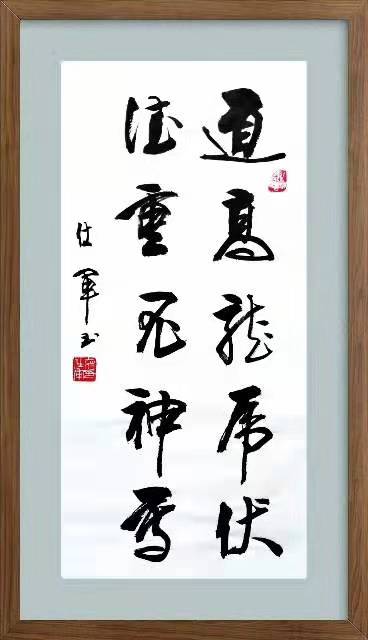 道高龍虎伏
德重鬼神驚
仕軍书